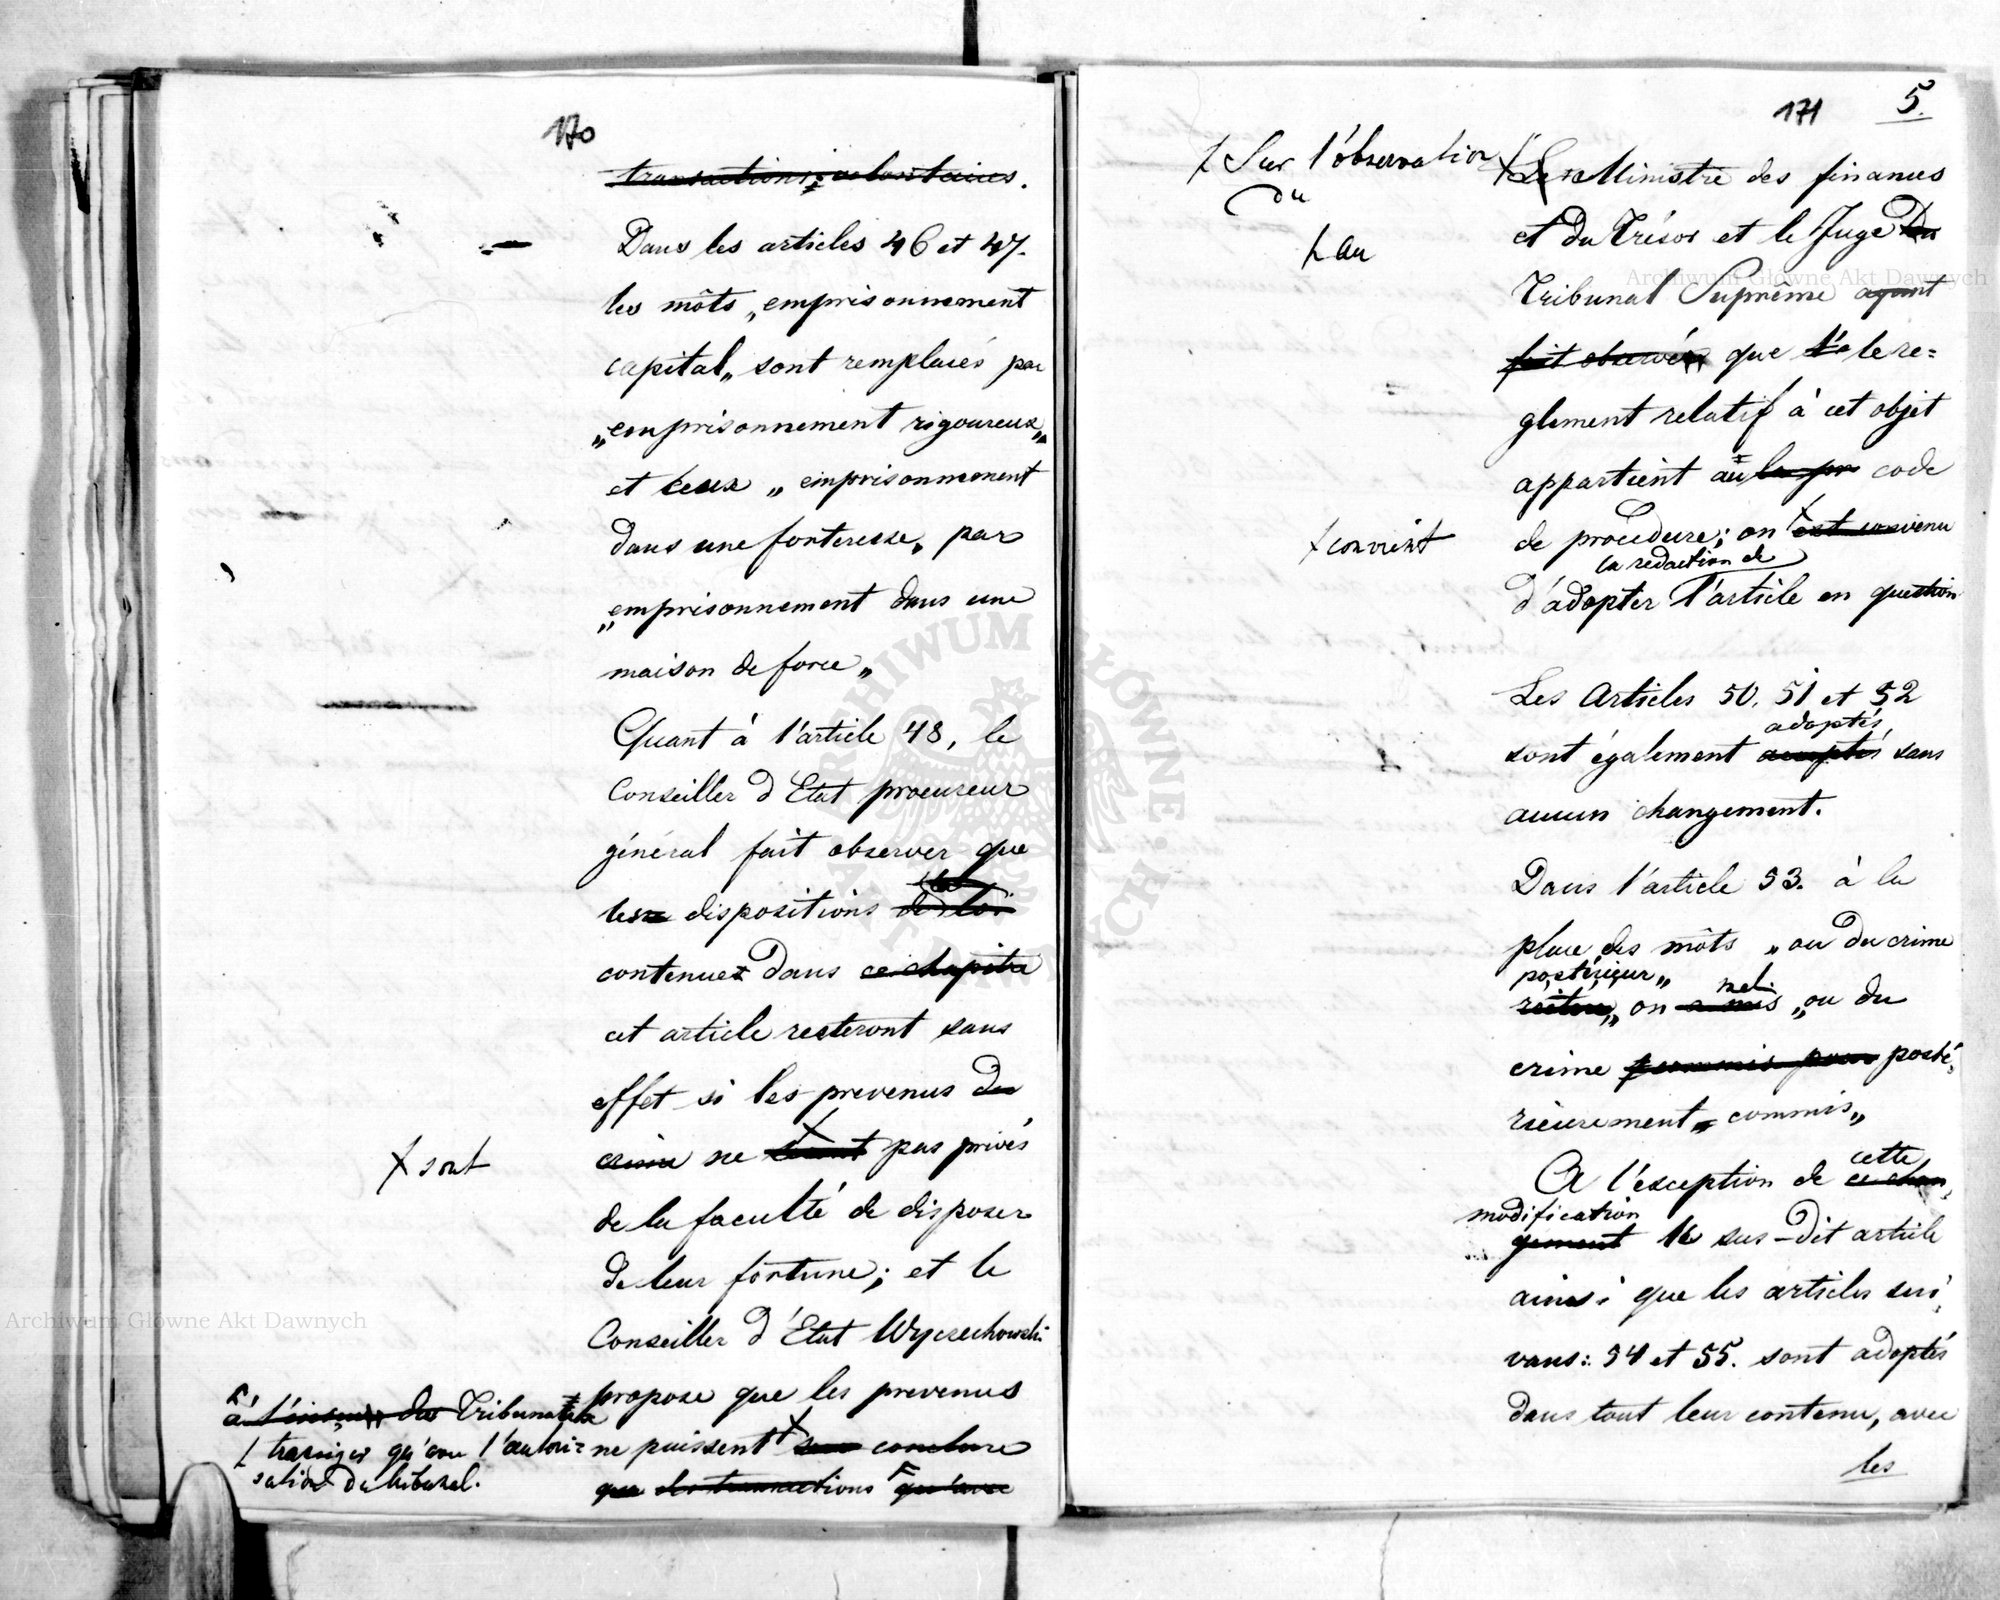 170
transactions volontaires.
Dans les articles 46 et 47.
les môts „emprisonnement
capital„ sont remplacés par
„emprisonnement rigoureux„
et ceux „emprisonnement
dans une forteresse„ par
„emprisonnement dans une
maison de force„
Quant à l'article 48, le
Conseiller d'Etat procureur
général fait observer que
les dispositions de loi
contenues dans ce chapitre
cet article resteront sans
effet si les prevenus du
crime ne pas privés
+ sont
de la faculté de disposer
de leur fortune; et le
Conseiller d'Etat Wyczechowski
propose que les prevenus
ne puissent conclure
que des transactions qu'avec
à du Tribunal
transiger qu'avec l'autori-
sation du tribunal.
171 5.
+ Sur l'observation
du
Les Ministre des finances
et du Trésor et le Juge du
+ au
Tribunal Suprême ayant
fait observér que le re=
glement relatif à cet objet
appartient au code
de procedure; on est convenu
+ convient
la redaction de
d'adopter l'article en question
Les Articles 50, 51 et 52
adoptés
sont également acceptés sans
aucun changement.
Dans l'article 53. à la
place des môts „ou du crime
postérieur„
on a mis „ou du
met
crime posté=
rieurement commis„
A l'exception de ce chan=
cette
modification
gement le sus-dit article
ainsi que les articles sui=
vans: 54 et 55. sont adoptés
dans tout leur contenu, avec
les
Archiwum Główne Akt Dawnych
Archiwum Główne Akt Dawnych
ARCHIWUM GŁÓWNE AKT DAWNYCH